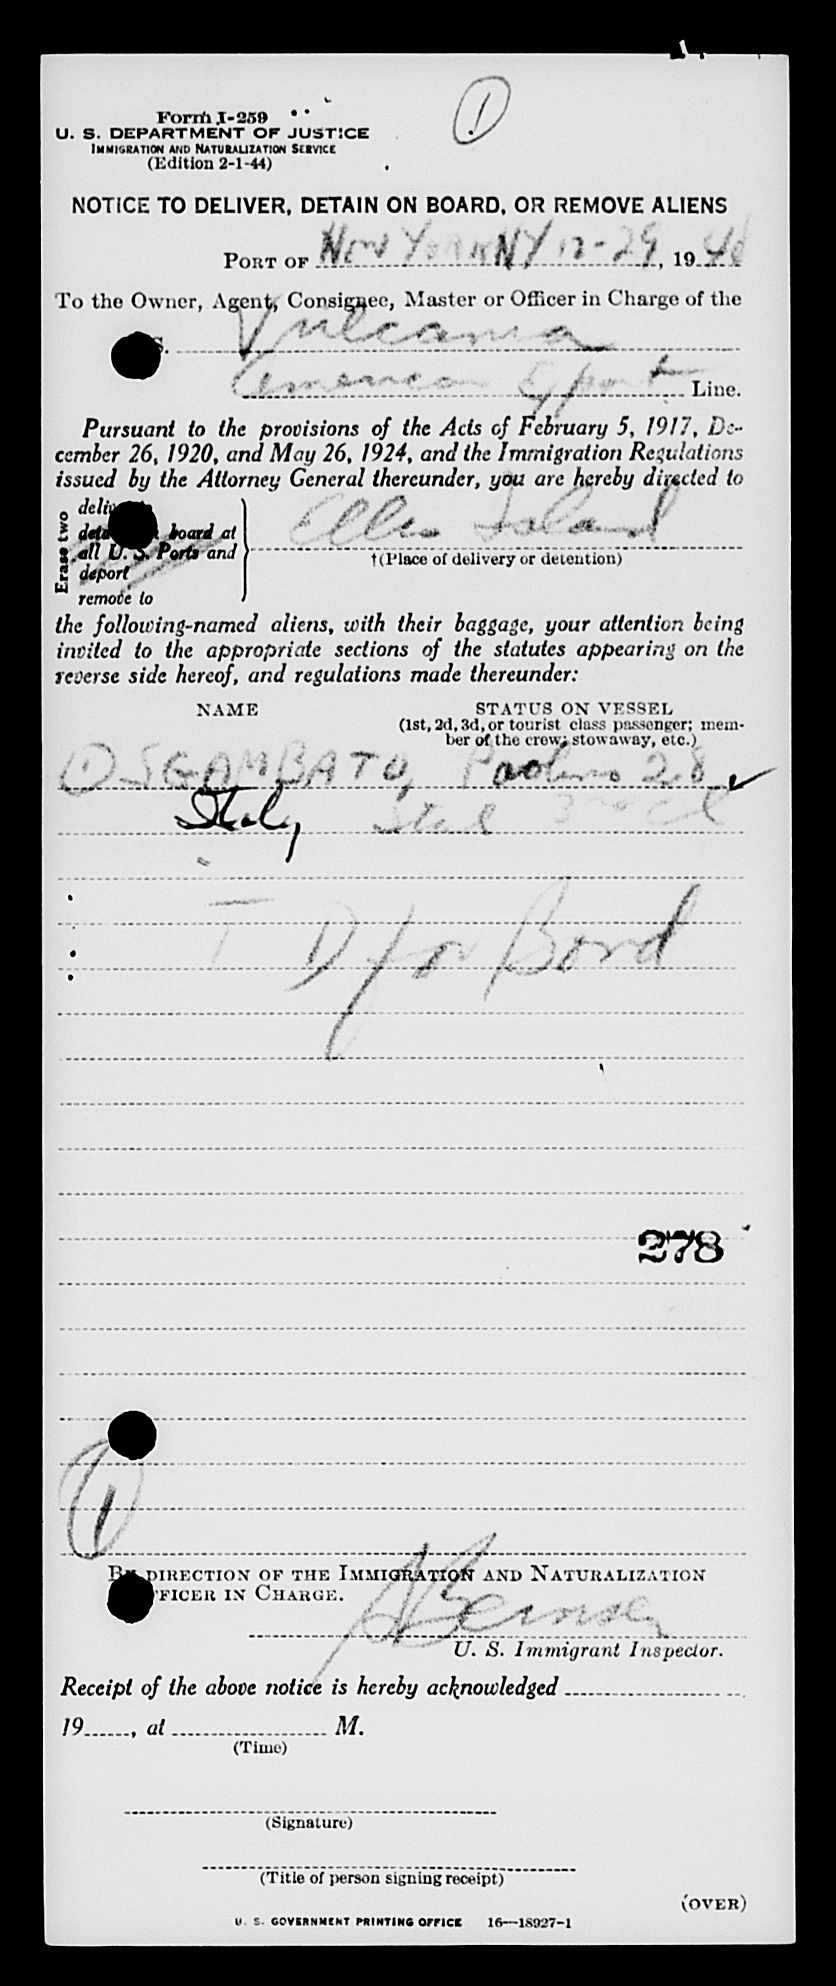 1
Form I-259
U. S. DEPARTMENT OF JUSTICE
IMMIGRATION AND NATURALIZATION SERVICE
(Edition 2-1-44)
NOTICE TO DELIVER, DETAIN ON BOARD, OR REMOVE ALIENS
PORT OF New York NY 12-29, 1948
To the Owner, Agent, Consignee, Master or Officer in Charge of the
S. Vulcania
American Export Line.
Pursuant to the provisions of the Acts of February 5, 1917, De-
cember 26, 1920, and May 26, 1924, and the Immigration Regulations
issued by the Attorney General thereunder, you are hereby directed to
Erase two
deliver to
detain on board at
all U. S. Ports and
deport
remove to
Ellis Island
†(Place of delivery or detention)
the following-named aliens, with their baggage, your attention being
invited to the appropriate sections of the statutes appearing on the
reverse side hereof, and regulations made thereunder:
NAME STATUS ON VESSEL
(1st, 2d, 3d, or tourist class passenger; mem-
ber of the crew; stowaway, etc.)
1 SGAMBATO, Paolino 28 ✓
Italy Ital 3rd Cl
T D for Bond
278
1
BY DIRECTION OF THE IMMIGRATION AND NATURALIZATION
OFFICER IN CHARGE.
U. S. Immigrant Inspector.
Receipt of the above notice is hereby acknowledged
19, at M.
(Time)
(Signature)
(Title of person signing receipt)
(OVER)
U. S. GOVERNMENT PRINTING OFFICE 16—18927-1